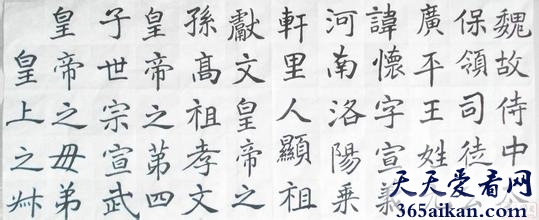 魏故侍中
保領司徒
廣平王姓
諱懷字宣義
河南洛陽乗
軒里人顯祖
獻文皇帝之
孫高祖孝文
皇帝之第四
子世宗宣武
皇帝之母弟
皇上之
天天爱看网
365aikan.com